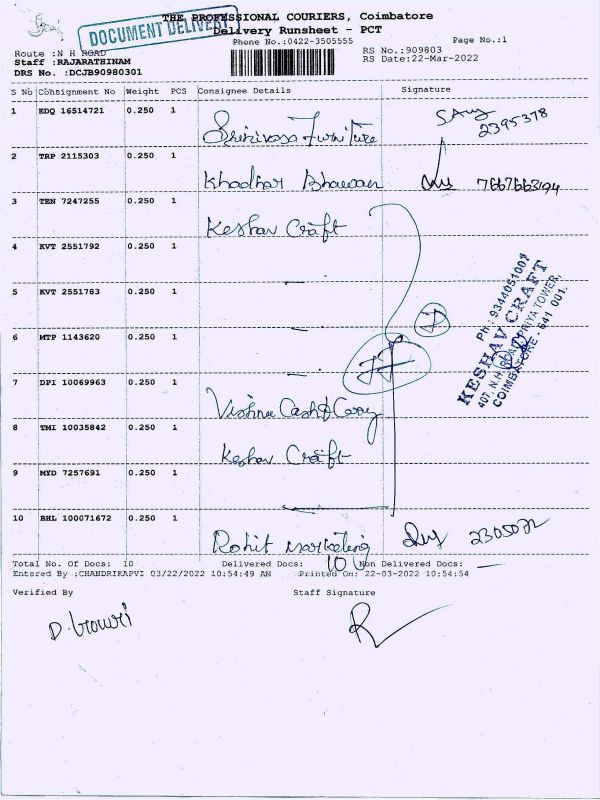 DOCUMENT DELIVERY
THE PROFESSIONAL COURIERS, Coimbatore
Delivery Runsheet - PCT
Phone No.:0422-3505555
Page No.:1
Route :N H ROAD
Staff :RAJARATHINAM
DRS No. :DCJB90980301
RS No.:909803
RS Date:22-Mar-2022
S No Consignment No Weight PCS Consignee Details Signature
1 EDQ 16514721 0.250 1 Srinivasa Furniture 2395378
2 TRP 2115303 0.250 1 Khadhar Bhawan 7667663194
3 TEN 7247255 0.250 1 Keshav Craft
4 KVT 2551792 0.250 1
5 KVT 2551783 0.250 1
6 MTP 1143620 0.250 1
7 DPI 10069963 0.250 1 Vishnu Cash & Carry
8 TMI 10035842 0.250 1 Keshav Craft
9 MYD 7257691 0.250 1
10 BHL 100071672 0.250 1 Rohit Marketing 2305072
Ph : 9344051001
KESHAV CRAFT
407, N.H. ROAD, PRIYA TOWER,
COIMBATORE - 641 001.
Total No. Of Docs: 10 Delivered Docs: 10 Non Delivered Docs: —
Entered By :CHANDRIKAPVI 03/22/2022 10:54:49 AM Printed On: 22-03-2022 10:54:54
Verified By Staff Signature
D. Gowri